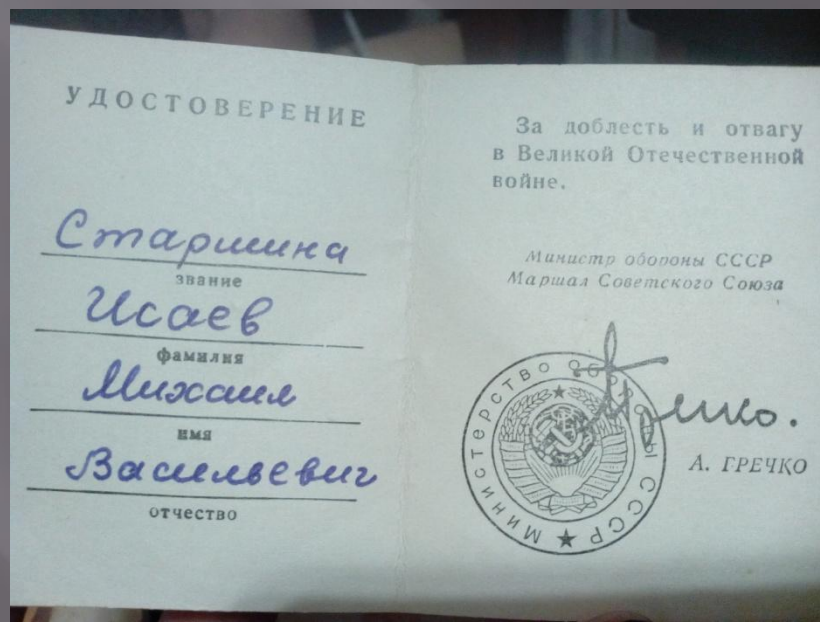 УДОСТОВЕРЕНИЕ
Старшина
звание
Исаев
фамилия
Михаил
имя
Васильевич
отчество
За доблесть и отвагу
в Великой Отечественной
войне.
Министр обороны СССР
Маршал Советского Союза
Министерство Обороны СССР
Гречко.
А. ГРЕЧКО